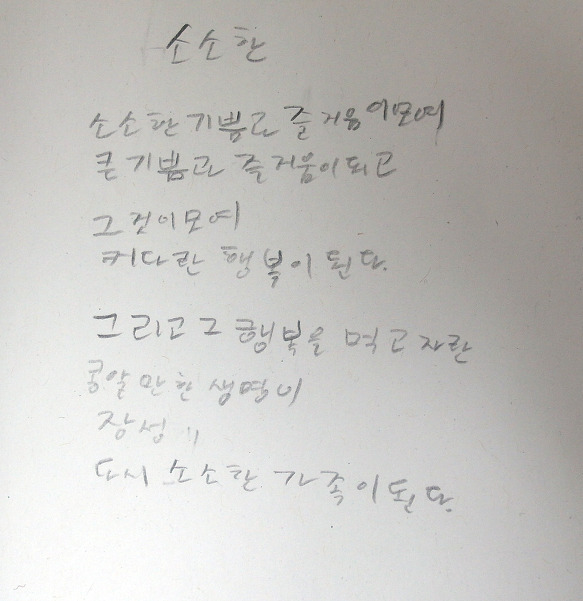 소소한
소소한 기쁨과 즐거움이모여
큰기쁨과 즐거움이되고
그것이모여
커다란 행복이 된다.
그리고 그 행복을 먹고 자란
콩알만한 생명이
장성
다시 소소한 가족이된다.